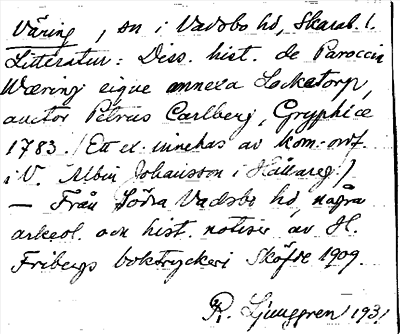 Väring, sn i Vadsbo hd, Skarab. l.
Litteratur: Diss. hist. de Paroccia
Wæring eique annexa Locketorp,
auctor Petrus Carlberg, Gryphiæ
1783. (Ett ex. innehas av kom.-ordf.
i V. Albin Johansson i Hällareg.)
— Från Södra Vadsbo hd, några
arkeol. och hist. notiser av H.
Fribergs boktryckeri Sköfde 1909
R. Ljunggren 1931